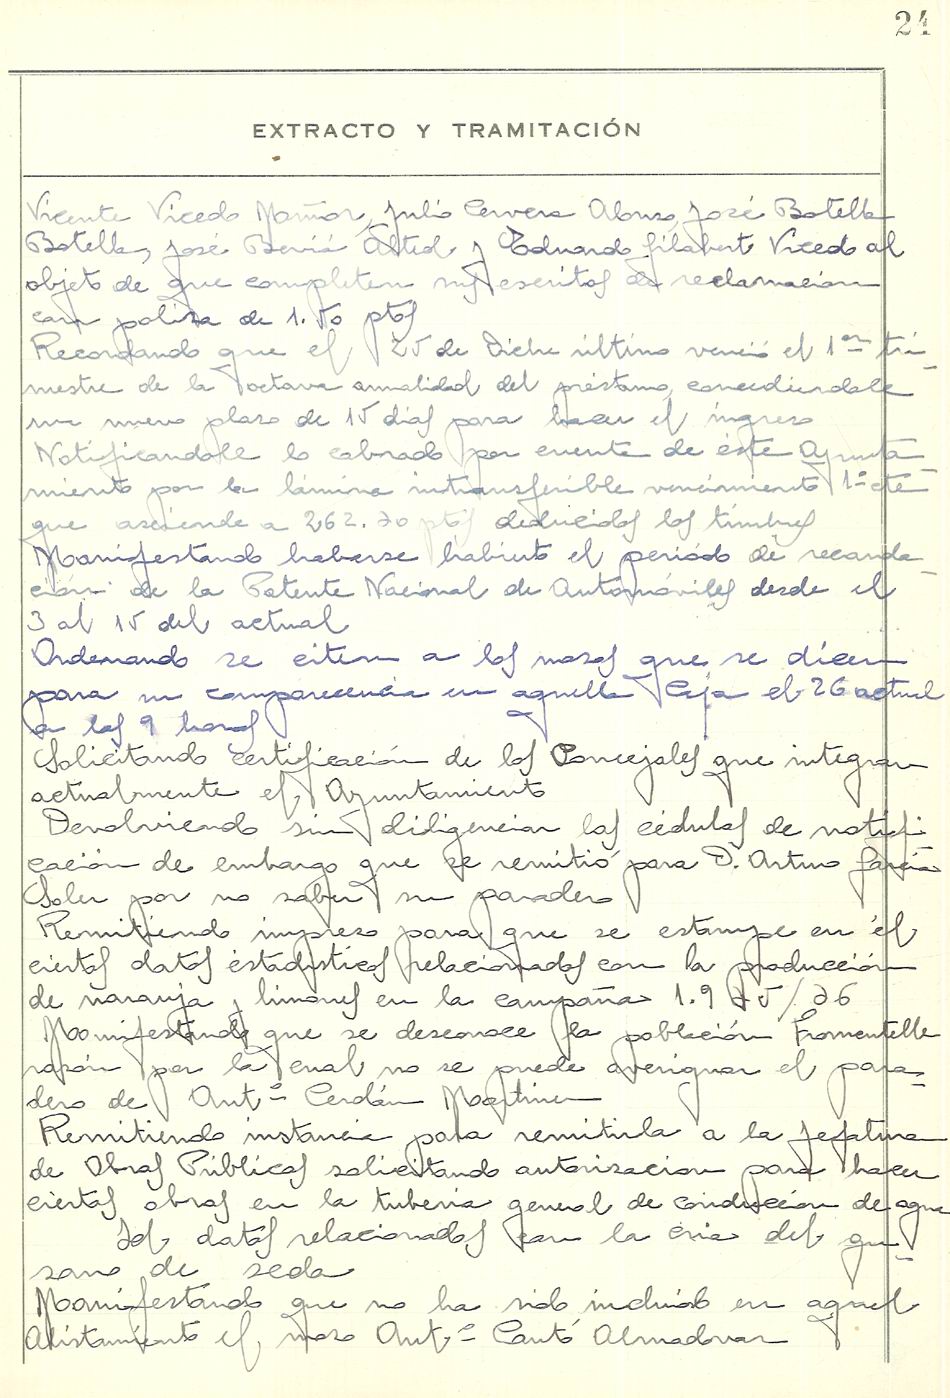 24
EXTRACTO Y TRAMITACIÓN
Vicente Vicedo Mañor, Julio Cervera Alonso, José Botella
Botella, José Beviá Alted y Eduardo Gilabert Vicedo al
objeto de que completen sus escritos de reclamacion
con poliza de 1.50 ptas
Recordando que el 25 de Dicbe último venció el 1er tri-
mestre de la octava anualidad del préstamo, concediendole
un nuevo plazo de 15 dias para hacer el ingreso
Notificandole lo cobrado por cuenta de éste Ayunta
miento por la lámina intransferible vencimiento 1º
que asciende a 262.70 ptas deducidos los timbres
Manifestando haberse habierto el periódo de recauda-
ción de la Patente Nacional de Automóviles desde el
3 al 15 del actual
Ordenando se citen a los mozos que se dicen
para su comparecencia en aquella Caja el 26 actual
a las 9 horas
Solicitando certificación de los Concejales que integran
actualmente el Ayuntamiento
Devolviendo sin diligenciar las cédulas de notifi-
cación de embargo que se remitió para D. Arturo García
Soler por no saber su paradero
Remitiendo impreso para que se estampe en él
ciertos datos estadisticos relacionados con la producción
de naranja y limones en la campaña 1.975/76
Manifestando que se desconoce la población Fromentelle
razón por la cual no se puede averiguar el para-
dero de Antº Cerdán Martinez
Remitiendo instancia para remitirla a la Jefatura
de Obras Públicas solicitando autorizacion para hacer
ciertas obras en la tuberia general de conducción de agua
Id. datos relacionados con la cria del gu-
sano de seda
Manifestando que no ha sido incluido en aquel
Alistamiento el mozo Antº Cantó Almadovar